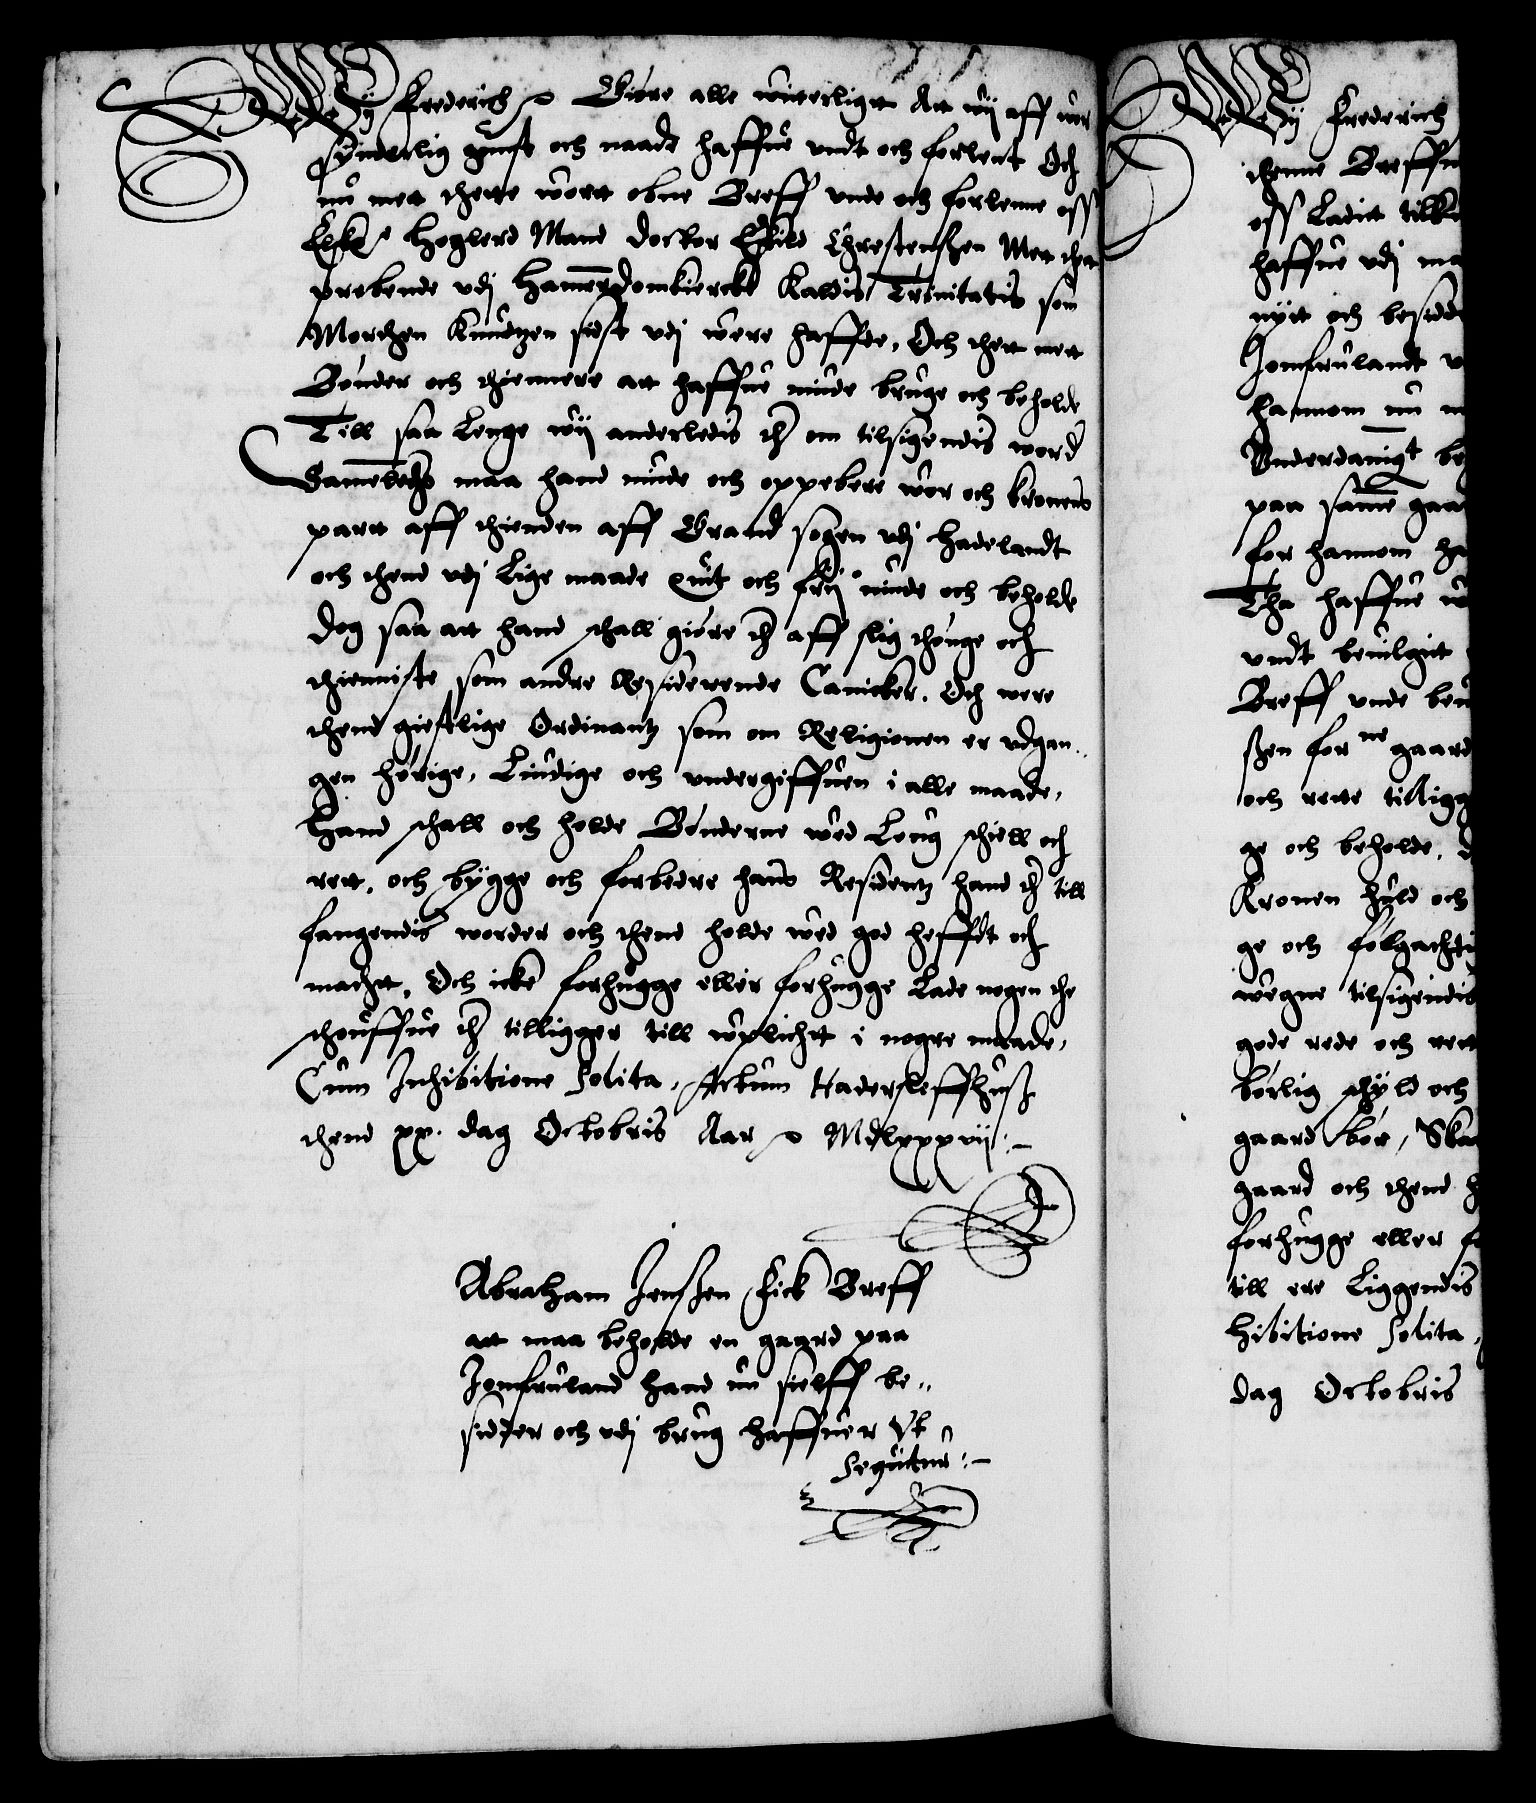 Wy Frederich etc Giøre alle witterligt Att wij aff wor
synderlig gunst och naade haffue vndt och forlent Och
nu mett thette wortt obne Breff vnde och forlenne oss
Elske: Høglerd Mand Doctor Eskild Chrestenssen Mett thet
prebende vdj Hammersdomkiercke Kaldis Trinitatis som
Morthen Knudtzen sidst vdj were haffde, Och thett mett
Bønder och thiennere att haffue niude bruge och beholde
Till saa Lenge wij anderledis ther om tilsigendis word
Sammeledis maa hand niude och oppebere wor och kronens
partt aff thienden aff Grand sogen vdj Hadelandt
och thend vdj Lige maade quit och frij niude och beholde
Dog saa att hand schall giøre ther aff slig thønge och
thienniste som andre Residerende Canicker. Och were
thend giestlige Ordinantz som om Religionen er vdgan..
gen hørige, Liudige och vndergiffuen i alle maade,
Hand schall och holde Bønderne wed Loug schiell och
rett, och bygge och forbedre hans Residentz hand ther till
fangendis worder och thend holde wed god hefftt och
machtt, Och icke forhugge eller forhugge Lade nogen the
schouffue ther tilligger till wplichtt i nogre maade,
Cum Inhibitione Solita, Actum Hadersleffhuss
thend xx. dag Octobris Aar etc Mdlxxxvij:-
Abraham Jenssen Fick Breff
att maa beholde en gaard paa
Jomfruland hand nu sielff be..
sidder och vdj brug haffuer Vt
Sequitur:-
Wy Frederich
thenne Breffu
oss Ladit tilke
haffue vdj ma
nytt och besidd
Jomfrulandt v
hannom nu m
Vnderdanigt be
paa samme gaa
for hannom ha
Tha haffue w
vndt beuilgit
Breff vnde beu
ssen forne gaard
och rette tilligg
ge och beholde, d
Kronen huld och
ge och følgachti
wegne tilsigendis
gode rede och rett
børlig schyld och
gaard bør, Ska
gaard och thend h
forhugge eller fo
till ere Liggendis
hibitione Solita,
dag Octobris